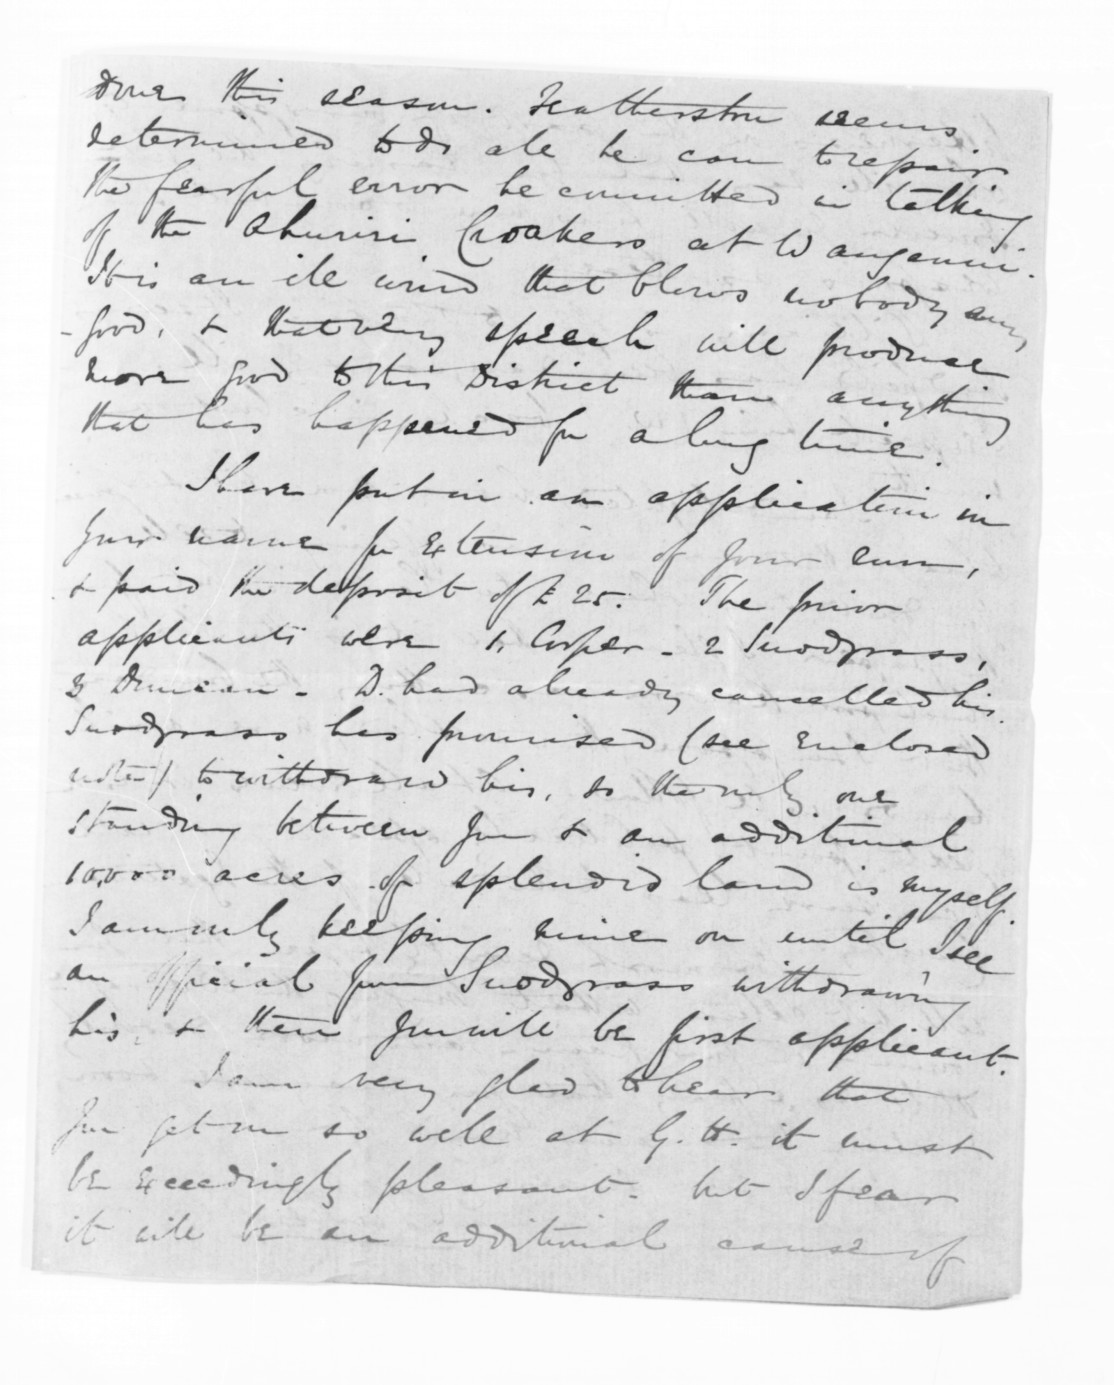 done this season. Featherston seems
determined to do all he can to repair
the fearful error he committed in talking
of the Ahuriri Croakers at Wanganui.
It is an ill wind that blows nobody any
good, & that very speech will produce
more good to this District than anything
that has happened for a long time.
I have put in an application in
your name for extension of your run,
& paid the deposit of £25. The prior
applicants were 1, Cooper - 2 Snodgrass,
3 Duncan - D. had already cancelled his.
Snodgrass has promised (see enclosed
note) to withdraw his, so the only one
standing between you & an additional
10,000 acres of splendid land is myself.
I am only keeping mine on until I see
an official from Snodgrass withdrawing
his, & then you will be first applicant.
I am very glad to hear that
you get on so well at G. H. it must
be exceedingly pleasant - but I fear
it will be an additional cause of